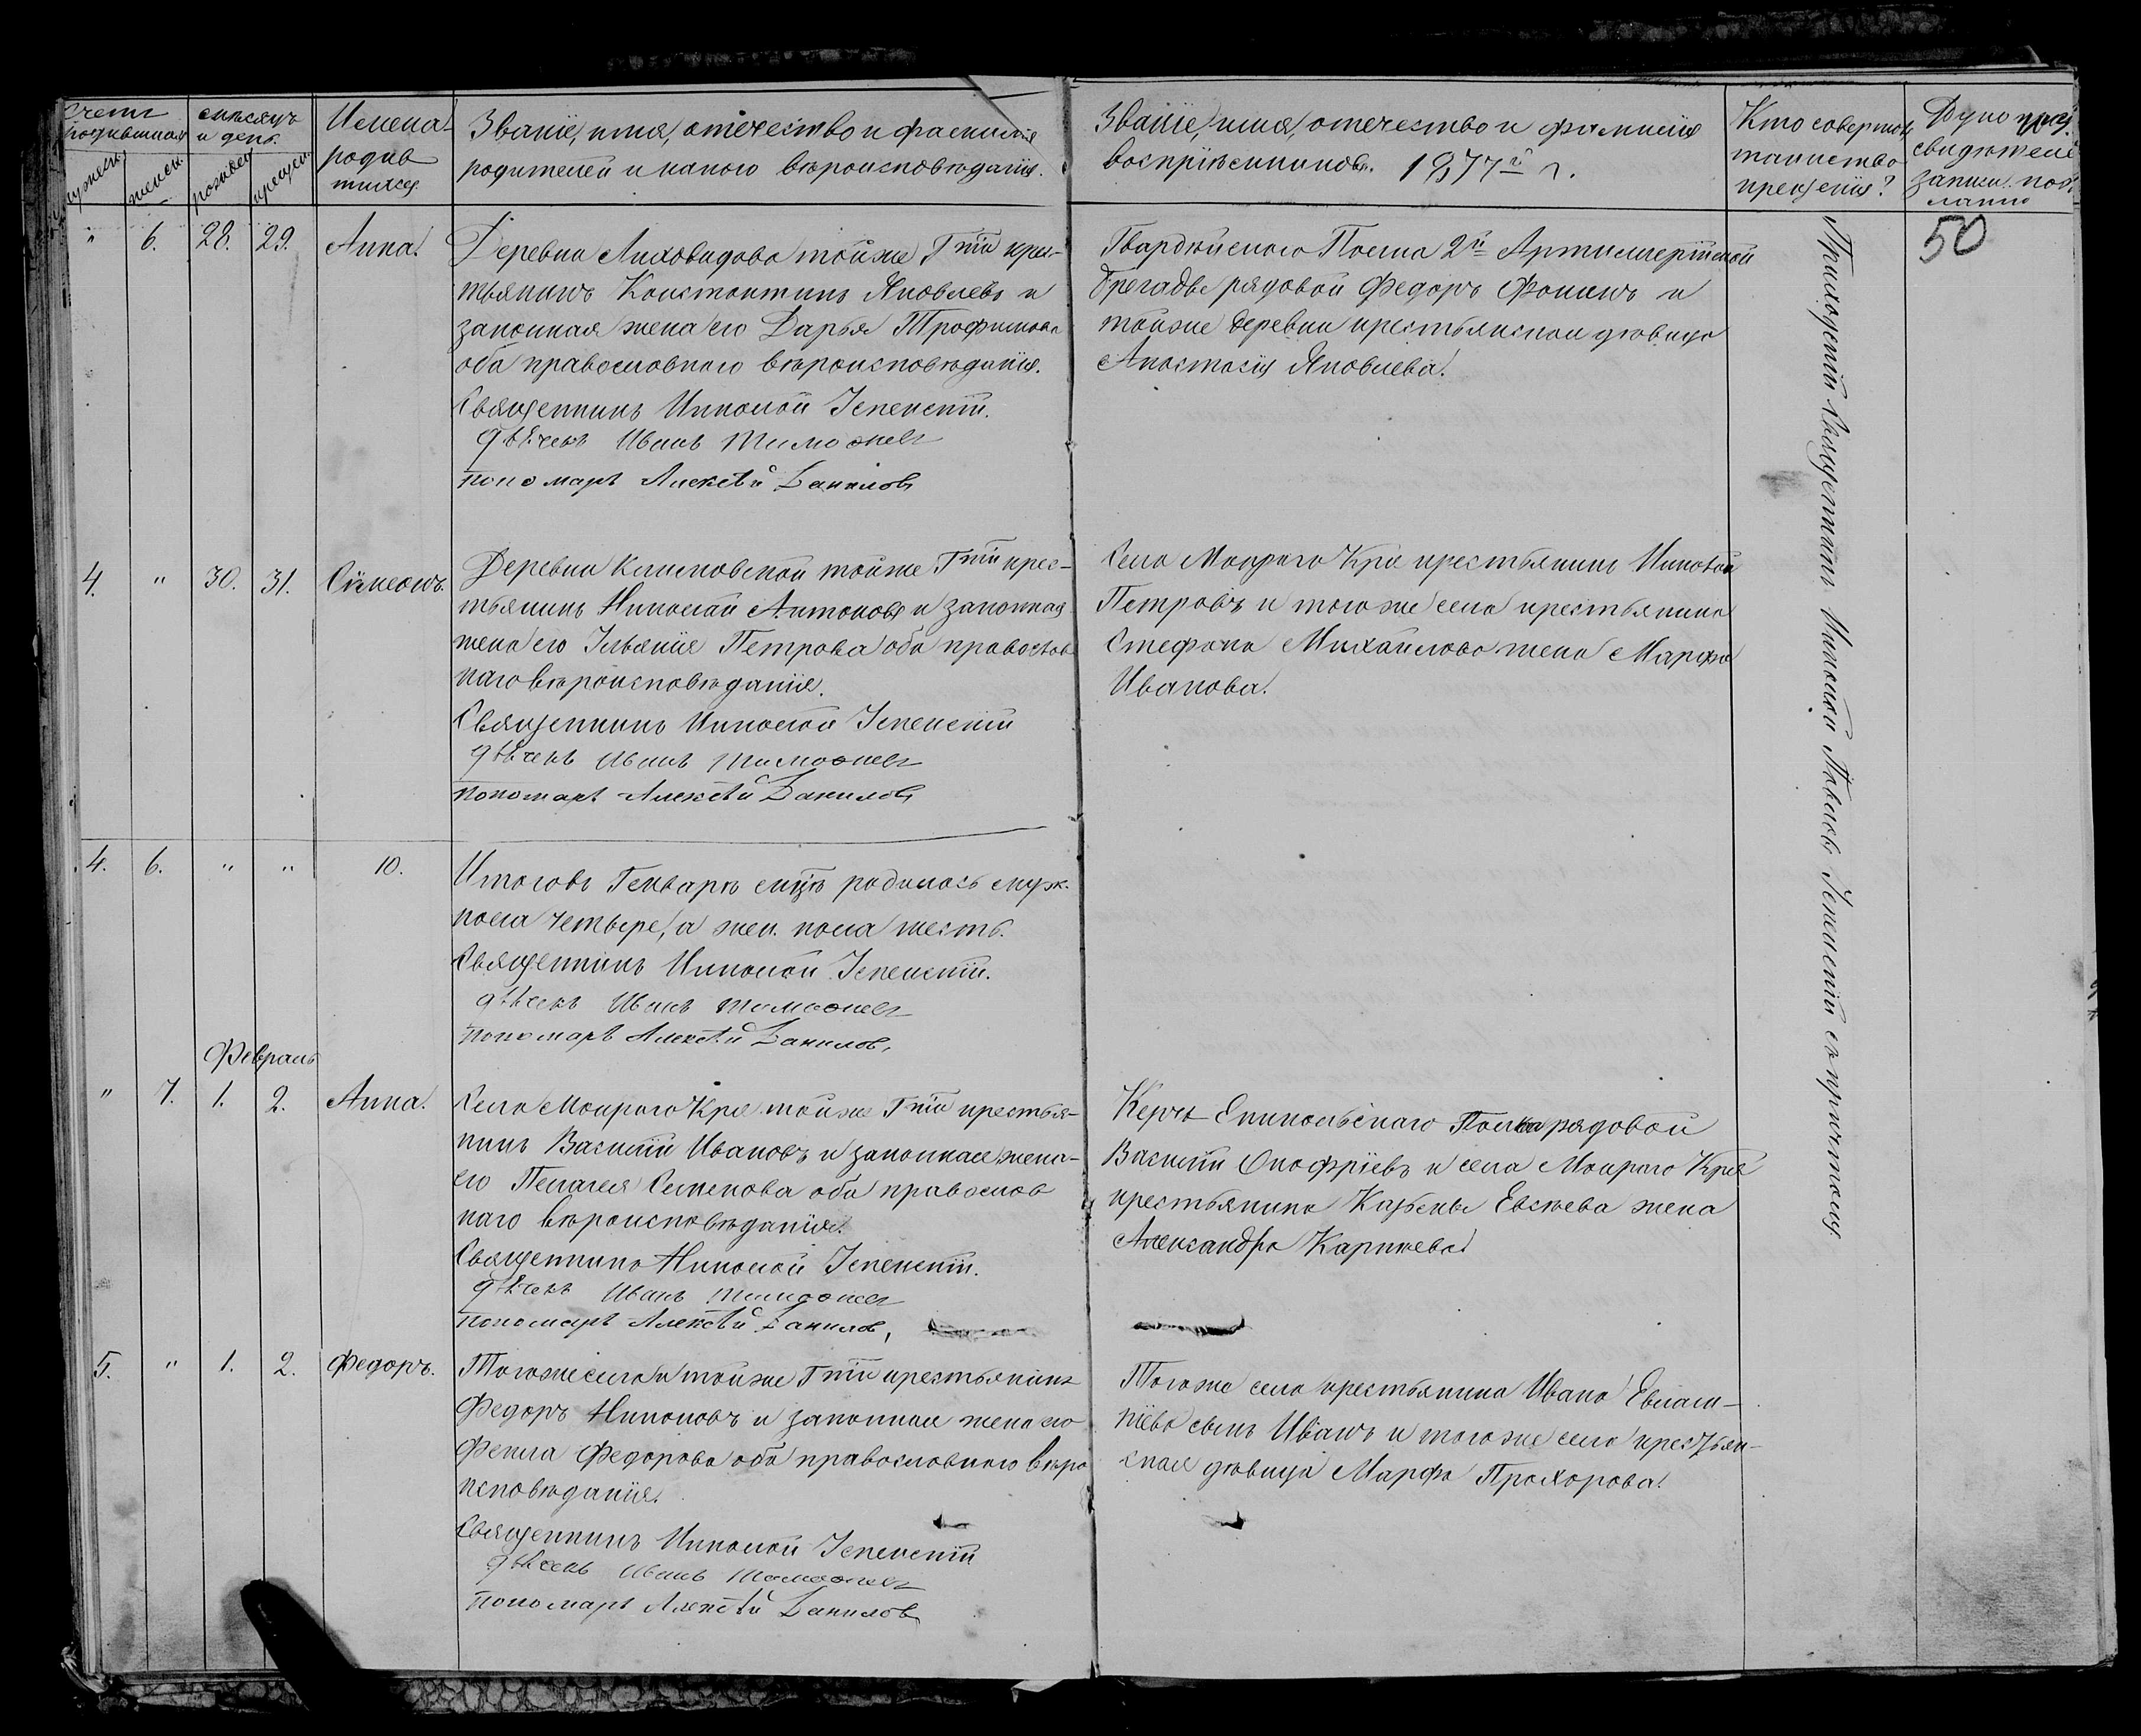 Счетъ родившихся
мужеск.
женск.
мѣсяцъ и день.
рожден.
крещен.
Имена родившихся
Званіе, имя, отечество и фамилія
родителей и какого вѣроисповѣданія.
Званіе, имя, отечество и фамилія
воспріемниковъ. 1877й г.
Кто совершалъ
таинство
крещенія?
свидѣтелей
записи
50
" 6. 28. 29. Анна.
Деревни Лиховидова тойже Гтіи крес-
тьянинъ Константинъ Яковлевъ и
законная жена его Дарья Трофимова
оба православнаго вѣроисповѣданія.
Священникъ Николай Успенскій.
дьячекъ Иванъ Тимофеев
пономарь Алексѣй Данилов
Гвардейскаго Полка 2й Артиллерійской
Брегадѣ рядовой Федоръ Фокинъ и
тойже деревни крестьянская дѣвица
Анастасія Яковлева.
4. " 30. 31. Сѵмеонъ.
Деревни Климовской тойже Гтіи крес-
тьянинъ Николай Антоновъ и законная
жена его Ульянія Петрова оба православ
наго вѣроисповѣданія.
Священникъ Николай Успенскій
дьячекъ Иванъ Тимофеев
пономарь Алексѣй Данилов
Села Мокраго Кря крестьянинъ Николай
Петровъ и тогоже села крестьянина
Стефана Михайлова жена Марфа
Иванова.
4. 6. " " 10.
Итого въ Генварѣ мцѣ родилось муж.
пола четыре, а жен. пола шесть.
Священникъ Николай Успенскій.
дьячекъ Иванъ Тимофеев
пономарь Алексѣй Данилов
Февраль
" 7. 1. 2. Анна.
Села Мокраго Кря тойже Гтіи крестья-
нинъ Василій Ивановъ и законная жена
его Пелагея Семенова оба православ
наго вѣроисповѣданія.
Священникъ Николай Успенскій.
дьячекъ Иванъ Тимофеев
пономарь Алексѣй Данилов
Керчь Еникольскаго Полка рядовой
Василій Онофріевъ и села Мокраго Кря
крестьянина Евсѣева жена
Александра
5. " 1. 2. Федоръ.
Тогоже села и тойже Гтіи крестьянинъ
Федоръ Никоновъ и законная жена его
Фекла Федорова оба православнаго вѣро
исповѣданія.
Священникъ Николай Успенскій
дьячекъ Иванъ Тимофеев
пономарь Алексѣй Данилов
Тогоже села крестьянина Ивана Евлам-
піева сынъ Иванъ и тогоже села крестьян-
ская дѣвица Марфа Прохорова.
Приходскій Священникъ Николай Павловъ Успенскій съ причтомъ.